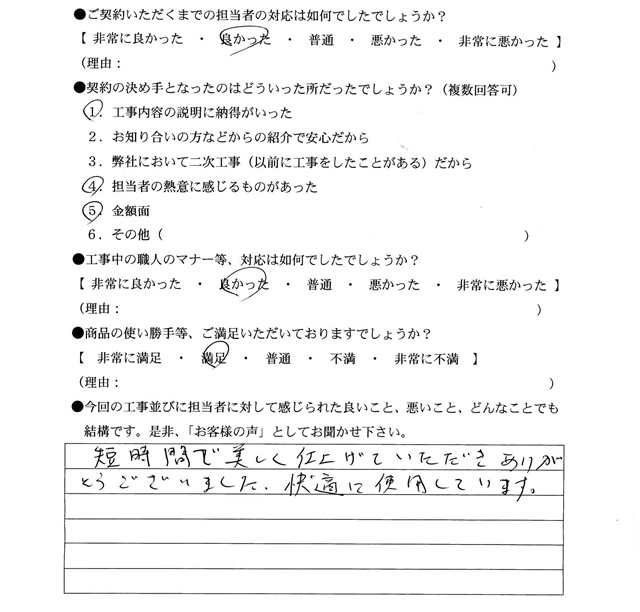 ●ご契約いただくまでの担当者の対応は如何でしたでしょうか？
【 非常に良かった ・ 良かった ・ 普通 ・ 悪かった ・ 非常に悪かった 】
（理由： ）
●契約の決め手となったのはどういった所だったでしょうか？（複数回答可）
１．工事内容の説明に納得がいった
２．お知り合いの方などからの紹介で安心だから
３．弊社において二次工事（以前に工事をしたことがある）だから
４．担当者の熱意に感じるものがあった
５．金額面
６．その他（ ）
●工事中の職人のマナー等、対応は如何でしたでしょうか？
【 非常に良かった ・ 良かった ・ 普通 ・ 悪かった ・ 非常に悪かった 】
（理由： ）
●商品の使い勝手等、ご満足いただいておりますでしょうか？
【 非常に満足 ・ 満足 ・ 普通 ・ 不満 ・ 非常に不満 】
（理由： ）
●今回の工事並びに担当者に対して感じられた良いこと、悪いこと、どんなことでも
結構です。是非、「お客様の声」としてお聞かせ下さい。
短時間で美しく仕上げていただきありが
とうございました．快適に使用しています。